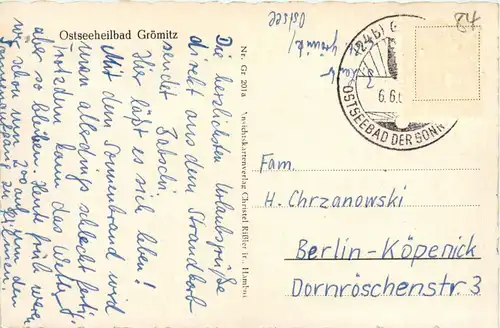 Ostseeheilbad Grömitz
Die herzlichsten Urlaubsgrüße
direkt aus dem Strandkorb
sendet
Hier läßt es sich leben!
Mit dem Sonnenbrand wird
man allerdings schlecht fertig
trotzdem kann das Wetter
aber so bleiben. Heute früh waren
wir schon um 3.00 auf, um den
Sonnenaufgang zu filmen.
Ostsee
Nr. Gr 201a Ansichtskartenverlag Christel Rißler
(24b) G
6.6.
OSTSEEBAD DER SONN
84
Fam.
H. Chrzanowski
Berlin-Köpenick
Dornröschenstr. 3